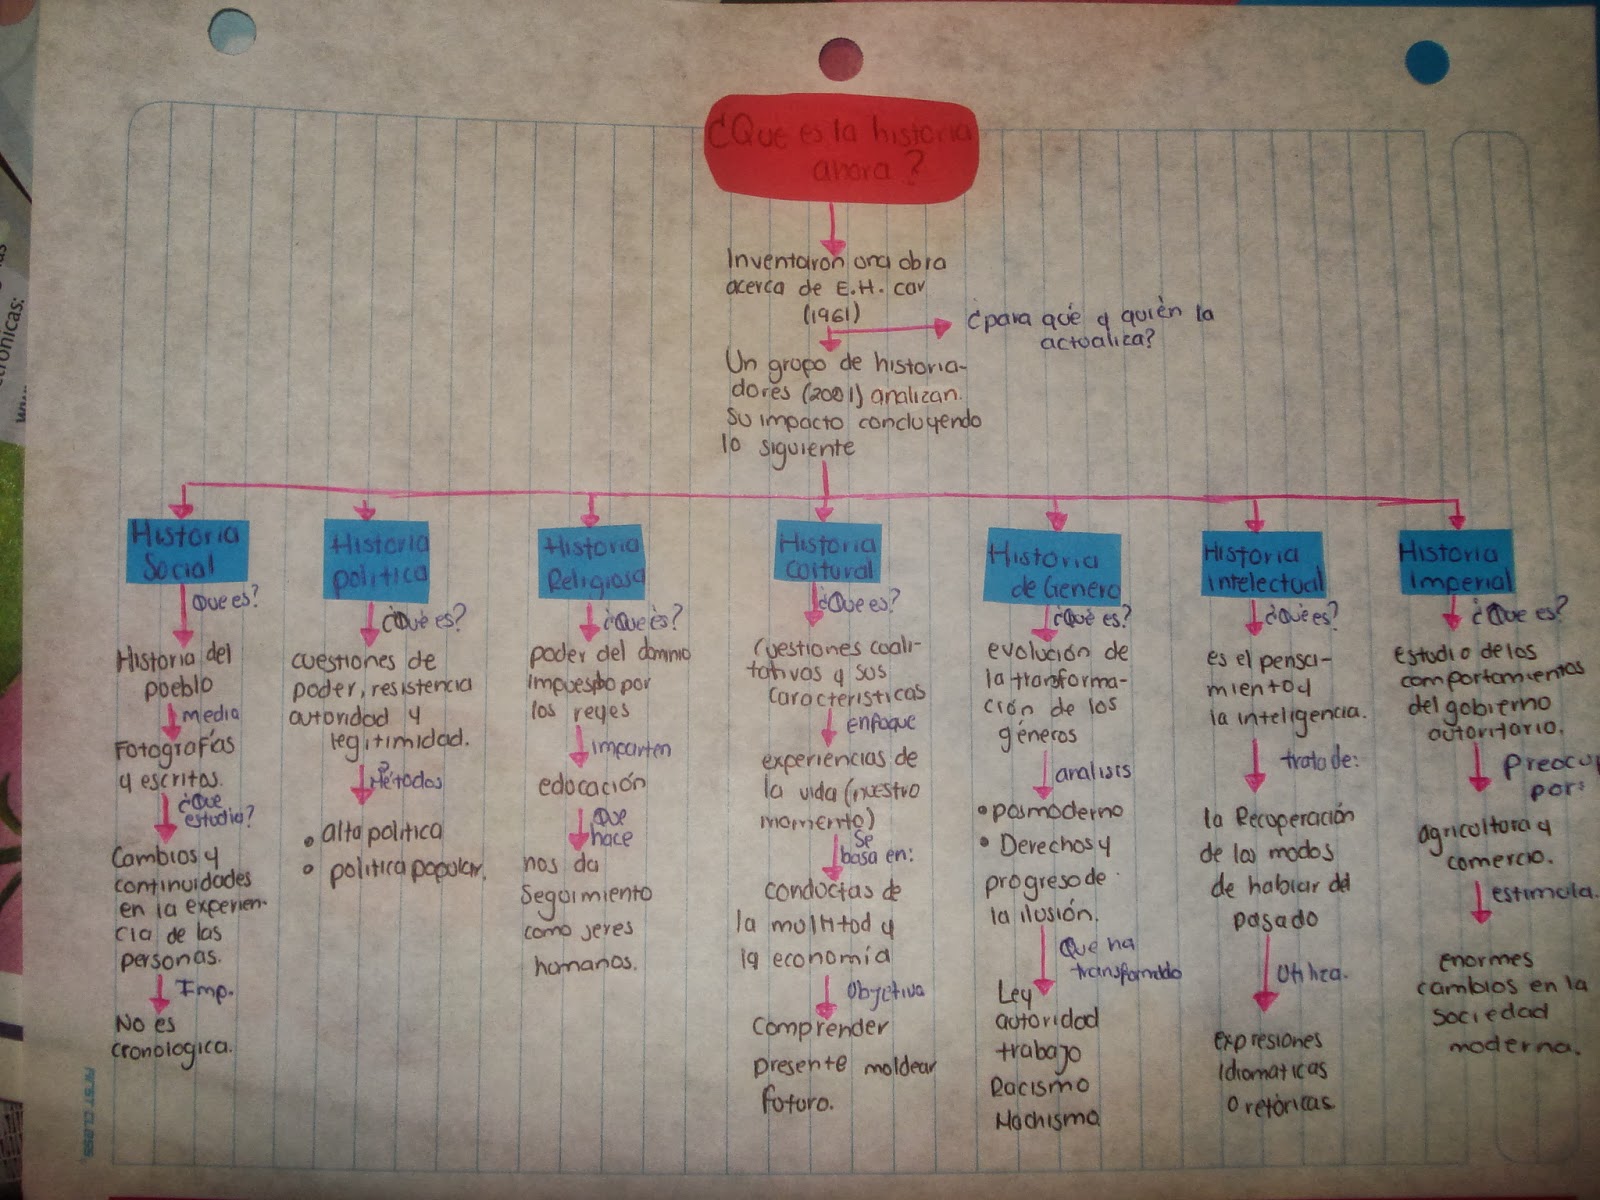 ¿Que es la historia
ahora?
Inventaron una obra
acerca de E.H. car
(1961)
¿para qué y quièn la
actualiza?
Un grupo de historia-
dores (2001) analizan.
Su impacto concluyendo
lo siguiente
Historia
Social
Que es?
Historia del
pueblo
media
Fotografías
y escritos.
¿Que
estudia?
Cambios y
continuidades
en la experien-
cia de las
personas.
Imp.
No es
cronologica.
Historia
politica
¿Què es?
cuestiones de
poder, resistencia
autoridad y
legitimidad.
Métodos
• alta politica
• politica popular.
Historia
Religiosa
¿Que ès?
poder del dominio
impuesto por
los reyes
imparten
educación
Que
hace
nos da
Seguimiento
como seres
humanos.
Historia
Cultural
¿Que es?
Cuestiones cuali-
tativas y sus
caracteristicas
enfoque
experiencias de
la vida (nuestro
momento)
Se
basa en:
conductas de
la multitud y
la economía
Objetivo
Comprender
presente moldear
futuro.
Historia
de Genero
¿Què es?
evolución de
la transforma-
ción de los
géneros
analisis
• posmoderno
• Derechos y
progreso de
la ilusión.
Que ha
transformado
Ley
autoridad
trabajo
Racismo
Machismo
Historia
intelectual
¿Què es?
es el pensa-
miento y
la inteligencia.
trata de:
la Recuperación
de los modos
de hablar del
pasado
Utiliza.
expresiones
Idiomaticas
o retòricas.
Historia
imperial
¿Que es?
estudio de los
comportamientos
del gobierno
autoritario.
Preocu
por:
agricultura y
comercio.
estimula.
enormes
cambios en la
sociedad
moderna.